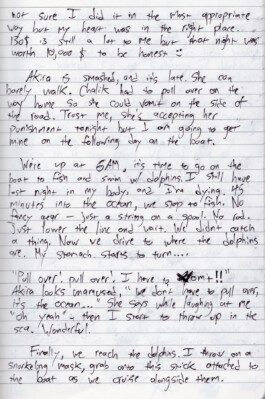 not sure I did it in the most appropriate
way but my heart was in the right place.
130$ is still a lot to me but that night was
worth 10,000 $ to be honest :)
Akira is smashed, and it's late. She can
barely walk. Chalik had to pull over on the
way home so she could vomit on the side of
the road. Trust me, she's accepting her
punishment tonight but I am going to get
mine on the following day on the boat.
Were up at 6AM it's time to go on the
boat to fish and swim w/ dolphins. I still have
last night in my body and I'm dying. 45
minutes into the ocean, we stop to fish. No
fancy gear - just a string on a spool. No rod.
Just lower the line and wait. We didn't catch
a thing. Now we drive to where the dolphins
are. My stomach starts to turn....
"Pull over! pull over! I have to vomit!!"
Akira looks unamused, "We don't have to pull over,
it's the ocean..." She says while laughing at me
"oh yeah" - then I start to throw up in the
sea. Wonderful.
Finally, we reach the dolphins. I throw on a
snorkeling mask, grab onto this stick attached to
the boat as we cruise alongside them.